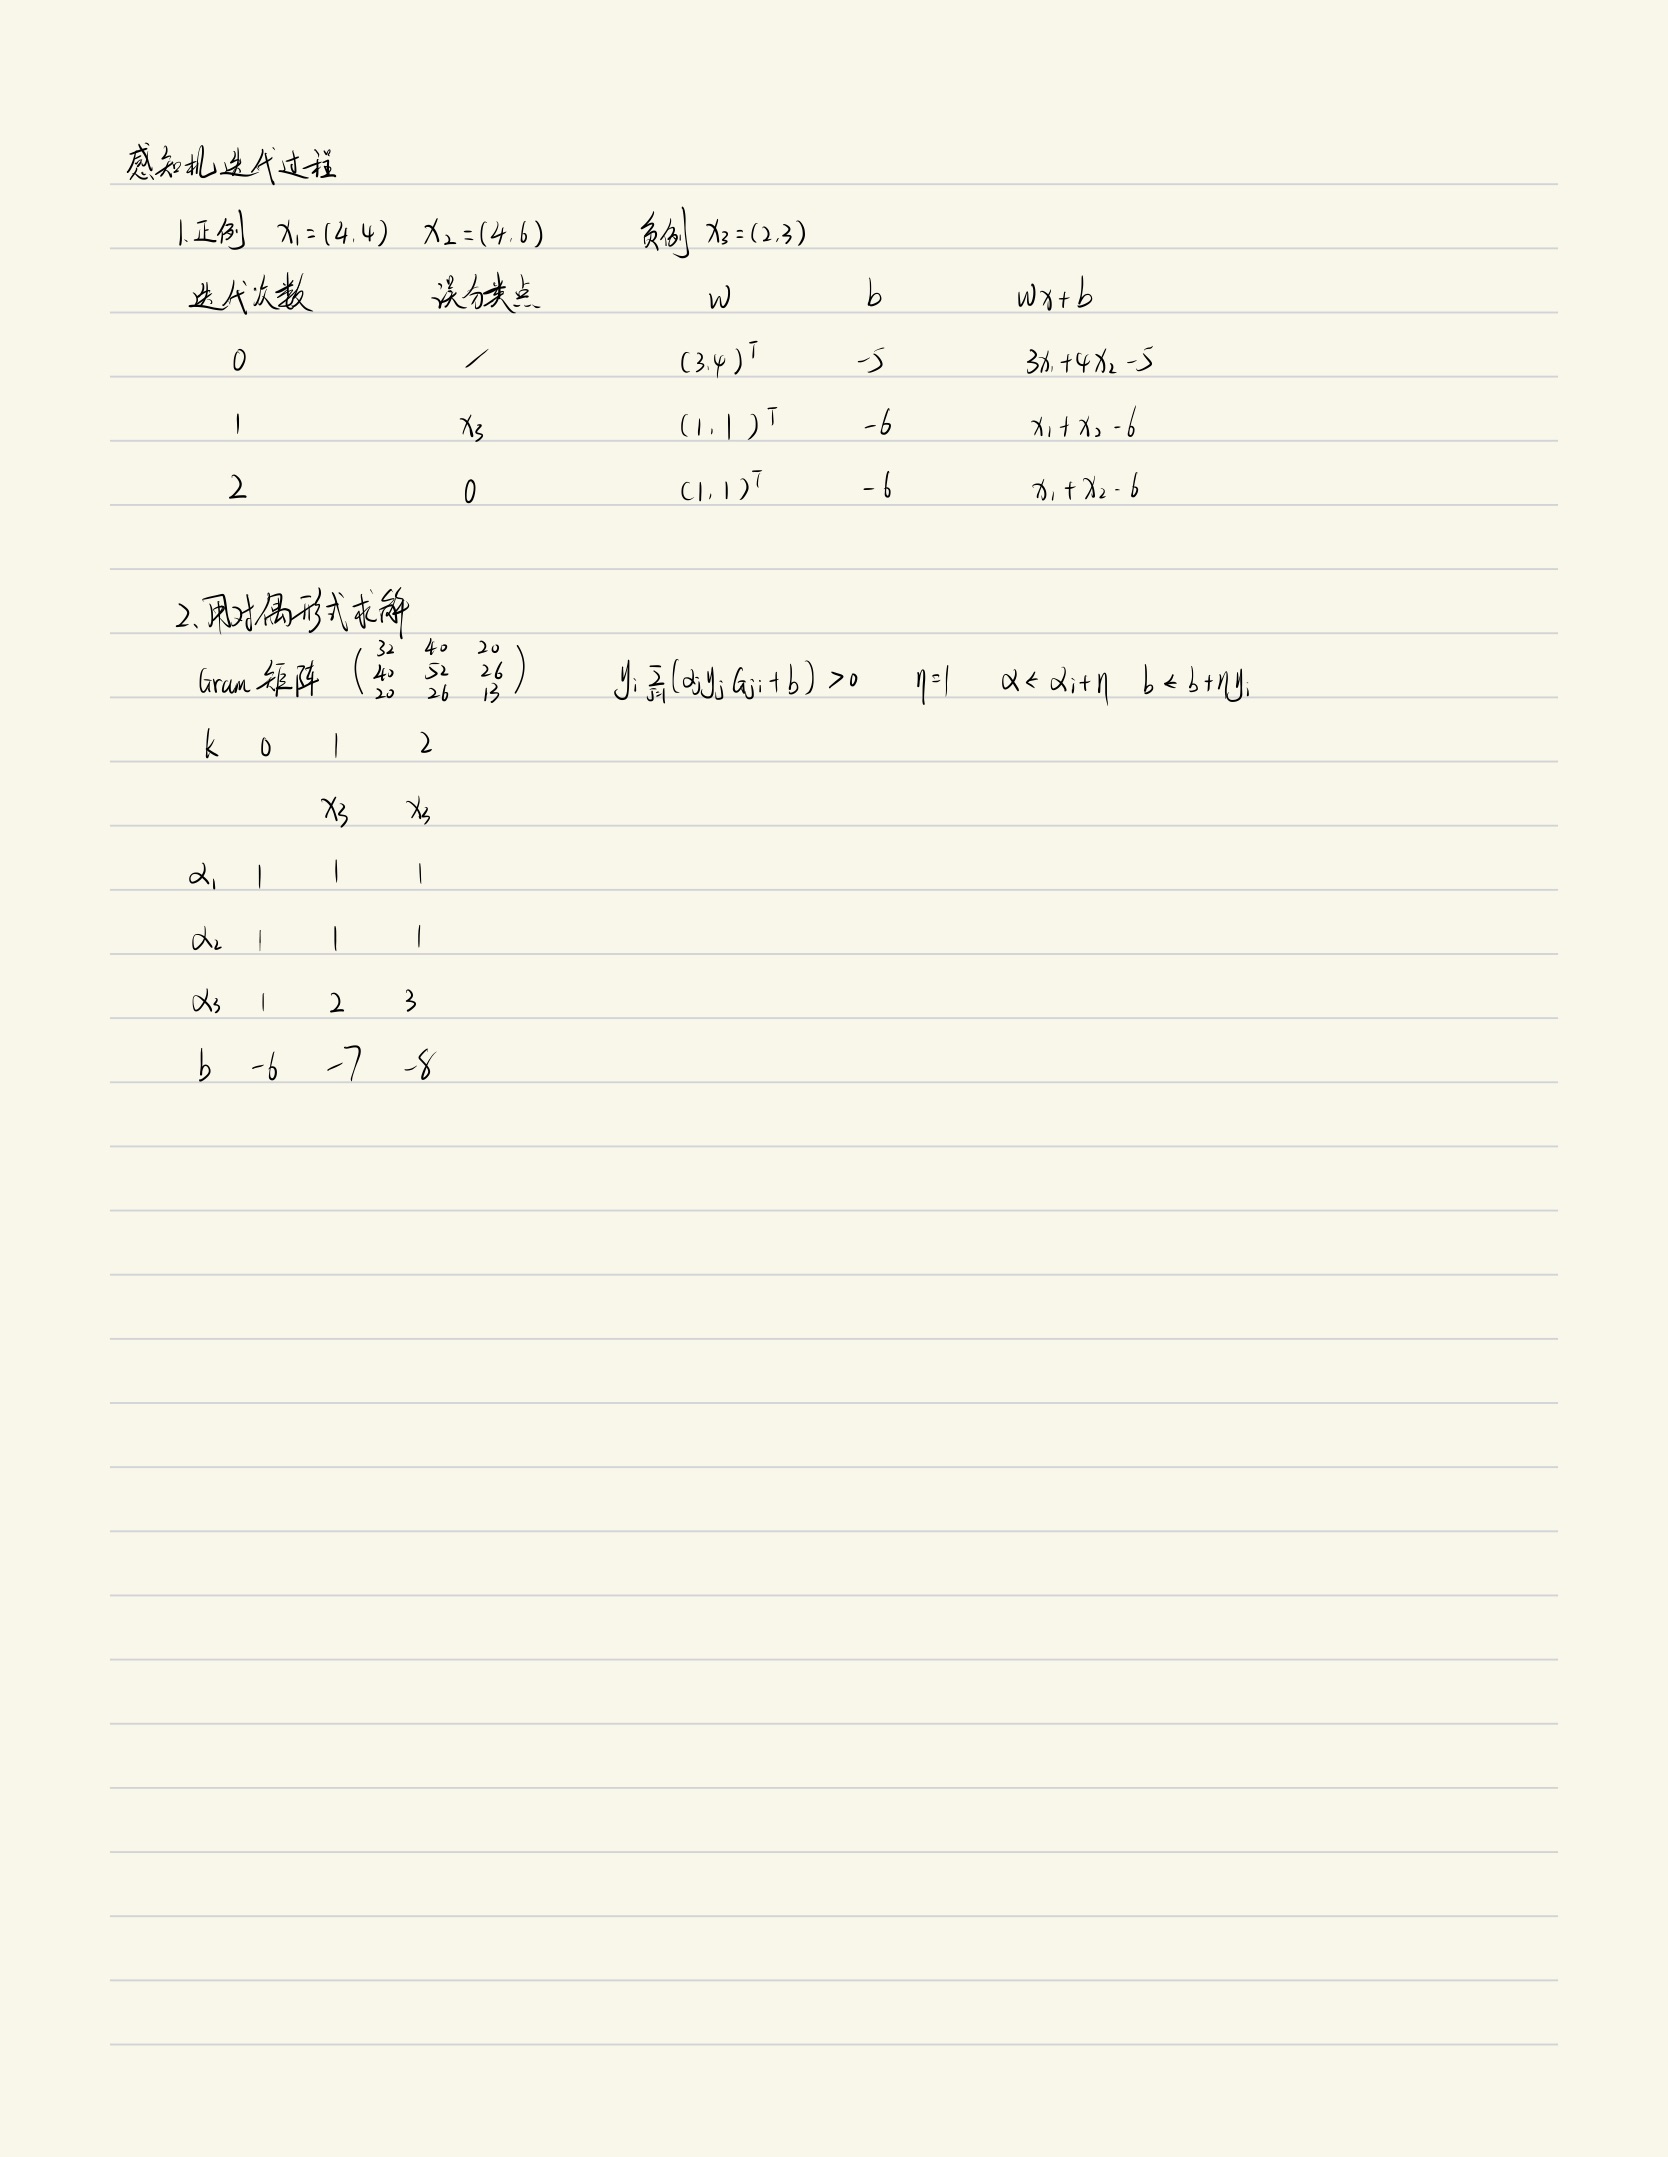 感知机迭代过程
1.正例 x₁=(4,4) x₂=(4,6) 负例 x₃=(2,3)
迭代次数 误分类点 w b wx+b
0 / (3,4)ᵀ -5 3x₁+4x₂-5
1 x₃ (1,1)ᵀ -6 x₁+x₂-6
2 0 (1,1)ᵀ -6 x₁+x₂-6
2、用对偶形式求解
32 40 20
Gram 矩阵 ( 40 52 26 ) yᵢ Σ(αⱼyⱼGⱼᵢ+b)>0 η=1 α←αᵢ+η b←b+ηyᵢ
j=1
20 26 13
k 0 1 2
x₃ x₃
α₁ 1 1 1
α₂ 1 1 1
α₃ 1 2 3
b -6 -7 -8